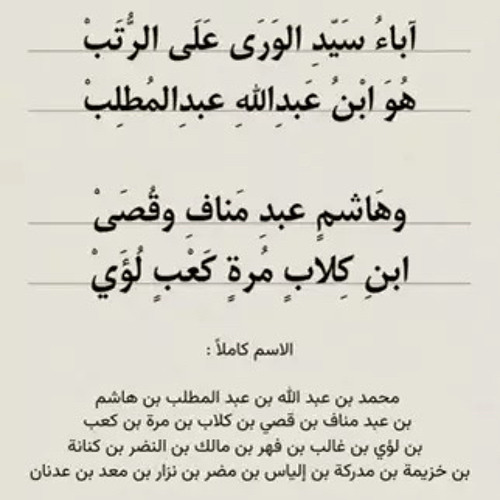 آباءُ سَيّدِ الوَرَى عَلَى الرُّتَبْ
هُوَ ابْنُ عَبدِاللهِ عبدِالمُطلِبْ
وهَاشمٍ عبدِ مَنافِ وقُصَىْ
ابنِ كِلابٍ مُرةٍ كَعْبٍ لُؤَيْ
الاسم كاملاً :
محمد بن عبد الله بن عبد المطلب بن هاشم
بن عبد مناف بن قصي بن كلاب بن مرة بن كعب
بن لؤي بن غالب بن فهر بن مالك بن النضر بن كنانة
بن خزيمة بن مدركة بن إلياس بن مضر بن نزار بن معد بن عدنان